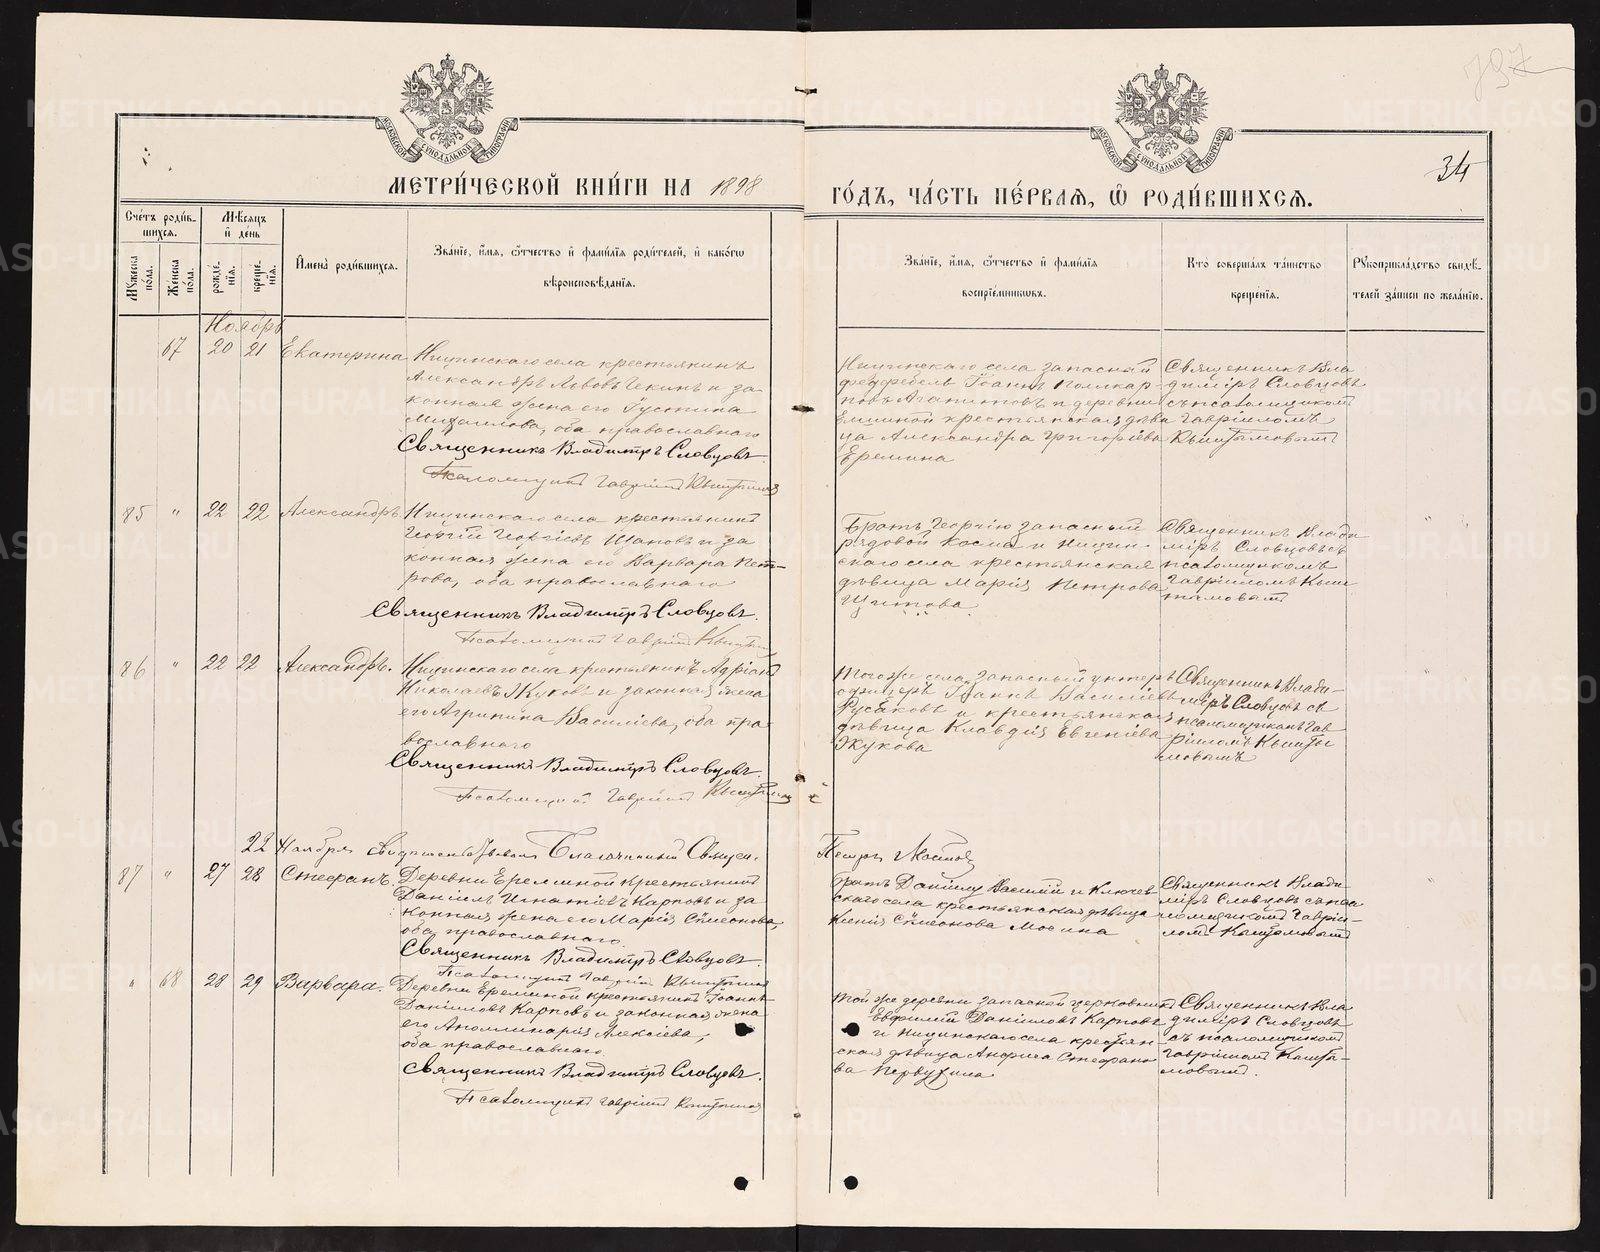 797
34
МОСКОВСКОЙ СѴНОДАЛЬНОЙ ТИПОГРАФІИ
МОСКОВСКОЙ СѴНОДАЛЬНОЙ ТИПОГРАФІИ
МЕТРИ́ЧЕСКОЙ КНИ́ГИ НА 1898
ГО́ДЪ, ЧА́СТЬ ПЕ́РВАЯ, Ѿ РОДИ́ВШИХСЯ.
Сче́тъ роди́в-
шихся.
Мꙋ́жеска по́ла.
Же́нска по́ла.
Мѣ́сяцъ
и́ де́нь
рожде́нїя.
креще́нїя.
И҆мена̀ роди́вшихся.
Зва́нїе, и҆́мя, ѻ҆́тчество и҆ фами́лїя роди́телей, и҆ како́гѡ
вѣроисповѣ́данїя.
Зва́нїе, и҆́мя, ѻ҆́тчество и҆ фами́лїя
воспрїе́мникѡвъ.
Кто̀ соверша́лъ та́инство
креще́нїя.
Рꙋкоприкла́дство свидѣ́-
телей за́писи по жела́нїю.
Ноябрь
67 20 21 Екатерина
Ницинскаго села крестьянинъ
Александръ Львовъ Чекинъ и за
конная жена его Густина
Михаилова, оба православнаго
Священникъ Владиміръ Словцовъ.
Псаломщикъ Гавріилъ Кыштымовъ
Ницинскаго села запасной
фельдфебель Іоаннъ Поликар
повъ Агапитовъ и деревни
Ереминой крестьянская дѣви
ца Александра Григоріева
Еремина
Священникъ Вла
диміръ Словцовъ
съ псаломщикомъ
Гавріиломъ
Кыштымовымъ
85 " 22 22 Александръ
Ницинскаго села крестьянинъ
Георгій Георгіевъ Щаповъ и за
конная жена его Варвара Пет-
рова, оба православнаго
Священникъ Владиміръ Словцовъ.
Псаломщикъ Гавріилъ Кыштым
Братъ Георгію запасный
рядовой Косма и Ницин-
скаго села крестьянская
дѣвица Марія Петрова
Щитова.
Священникъ Влади
міръ Словцовъ съ
псаломщикомъ
Гавріиломъ Кыш
тымовымъ
86 " 22 22 Александръ.
Ницинскаго села крестьянинъ Адріанъ
Николаевъ Жуковъ и законная жена
его Агрипина Василіева, оба пра-
вославнаго
Священникъ Владиміръ Словцовъ.
Псаломщикъ Гавріилъ Кыштымовъ
Того же села запасный унтеръ
офицеръ Іоаннъ Василіевъ
Русаковъ и крестьянская
дѣвица Клавдія Евгеніева
Жукова
Священникъ Влади-
міръ Словцовъ съ
псаломщикомъ Гав
ріиломъ Кышты
мовымъ
22 Ноября свидѣтельствовалъ Благочинный Священ.
87 " 27 28 Стефанъ.
Деревни Ереминой крестьянинъ
Даніилъ Игнатіевъ Карповъ и за
конная жена его Марія Симеонова,
оба православнаго.
Священникъ Владиміръ Словцовъ.
Псаломщикъ Гавріилъ Кыштымовъ
Братъ Даніилу Василій и Ключев
скаго села крестьянская дѣвица
Ксенія Симеонова Мосина
Священникъ Влади
міръ Словцовъ съ псал
ломщикомъ Гавріи-
ломъ Кыштымовымъ
" 68 28 29 Варвара.
Деревни Ереминой крестьянинъ Іоаннъ
Даніиловъ Карповъ и законная жена
его Аполлинарія Алексіева,
оба православнаго.
Священникъ Владиміръ Словцовъ.
Псаломщикъ Гавріилъ Кыштымовъ
Той же деревни запасной церковникъ
Евфимій Даніиловъ Карповъ
и Ницинскаго села крестьян-
ская дѣвица Анфиса Стефано
ва Первухина
Священникъ Вла
диміръ Словцовъ
съ псаломщикомъ
Гавріиломъ Кышты-
мовымъ.
METRIKI.GASO-URAL.RU